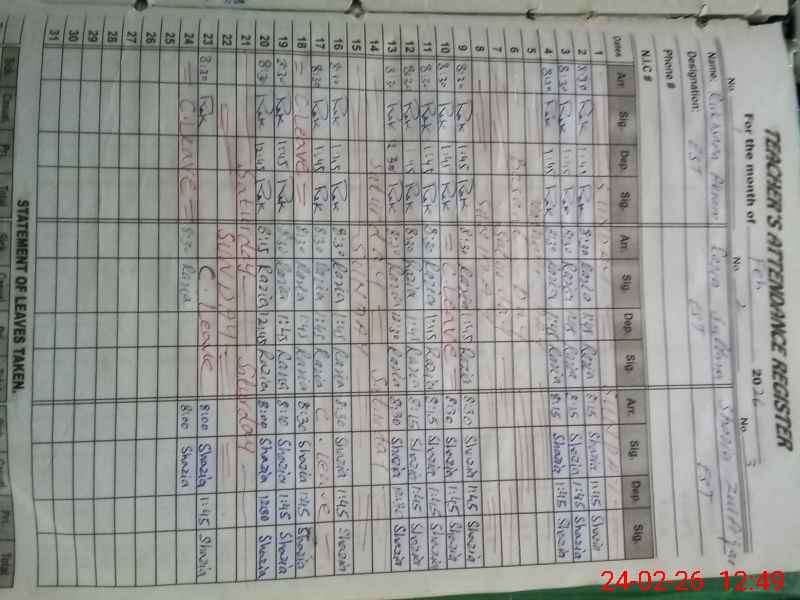 TEACHER'S ATTENDANCE REGISTER
For the month of Feb 2026
No. 1 No. 2 No. 3
Name: Perveen Razia Sultana Shazia Zulfiqar
Designation: EST EST EST
Phone #
N.I.C #
Dates Arr. Sig. Dep. Sig. Arr. Sig. Dep. Sig. Arr. Sig. Dep. Sig.
1 SUNDAY SUNDAY
2 8:30 Rak 1:45 Rak 8:30 Razia 1:45 Razia 8:15 Shazia 1:45 Shazia
3 8:30 Rak 1:45 Rak 8:30 Razia 1:45 Razia 8:15 Shazia 1:45 Shazia
4 8:30 Rak 1:45 Rak 8:30 Razia 1:45 Razia 8:15 Shazia 1:45 Shazia
5
6
7
8 SUNDAY
9 8:30 Rak 1:45 Rak 8:30 Razia 1:45 Razia 8:30 Shazia 1:45 Shazia
10 8:30 Rak 1:45 Rak = C Leave = 8:30 Shazia 1:45 Shazia
11 8:30 Rak 1:45 Rak 8:30 Razia 1:45 Razia 8:15 Shazia 1:45 Shazia
12 8:30 Rak 1:45 Rak 8:30 Razia 1:45 Razia 8:15 Shazia 1:45 Shazia
13 8:30 Rak 12:30 Rak 8:30 Razia 12:30 Razia 8:30 Shazia 12:30 Shazia
14 Saturday
15 SUNDAY
16 8:30 Rak 1:45 Rak 8:30 Razia 1:45 Razia 8:30 Shazia 1:45 Shazia
17 8:30 Rak 1:45 Rak 8:30 Razia 1:45 Razia C. Leave
18 = C Leave = 8:30 Razia 1:45 Razia 8:30 Shazia 1:45 Shazia
19 8:30 Rak 1:45 Rak 8:30 Razia 1:45 Razia 8:10 Shazia 1:45 Shazia
20 8:30 Rak 12:45 Rak 8:15 Razia 12:45 Razia 8:00 Shazia 12:30 Shazia
21 Saturday Saturday
22 = SUNDAY =
23 8:30 Rak C. Leave 8:00 Shazia 1:45 Shazia
24 = C Leave = 8:30 Razia 8:00 Shazia
25
26
27
28
29
30
31
STATEMENT OF LEAVES TAKEN.
Sick Casual Pri. Total Sick Casual Pri. Total
24-02-26 12:49